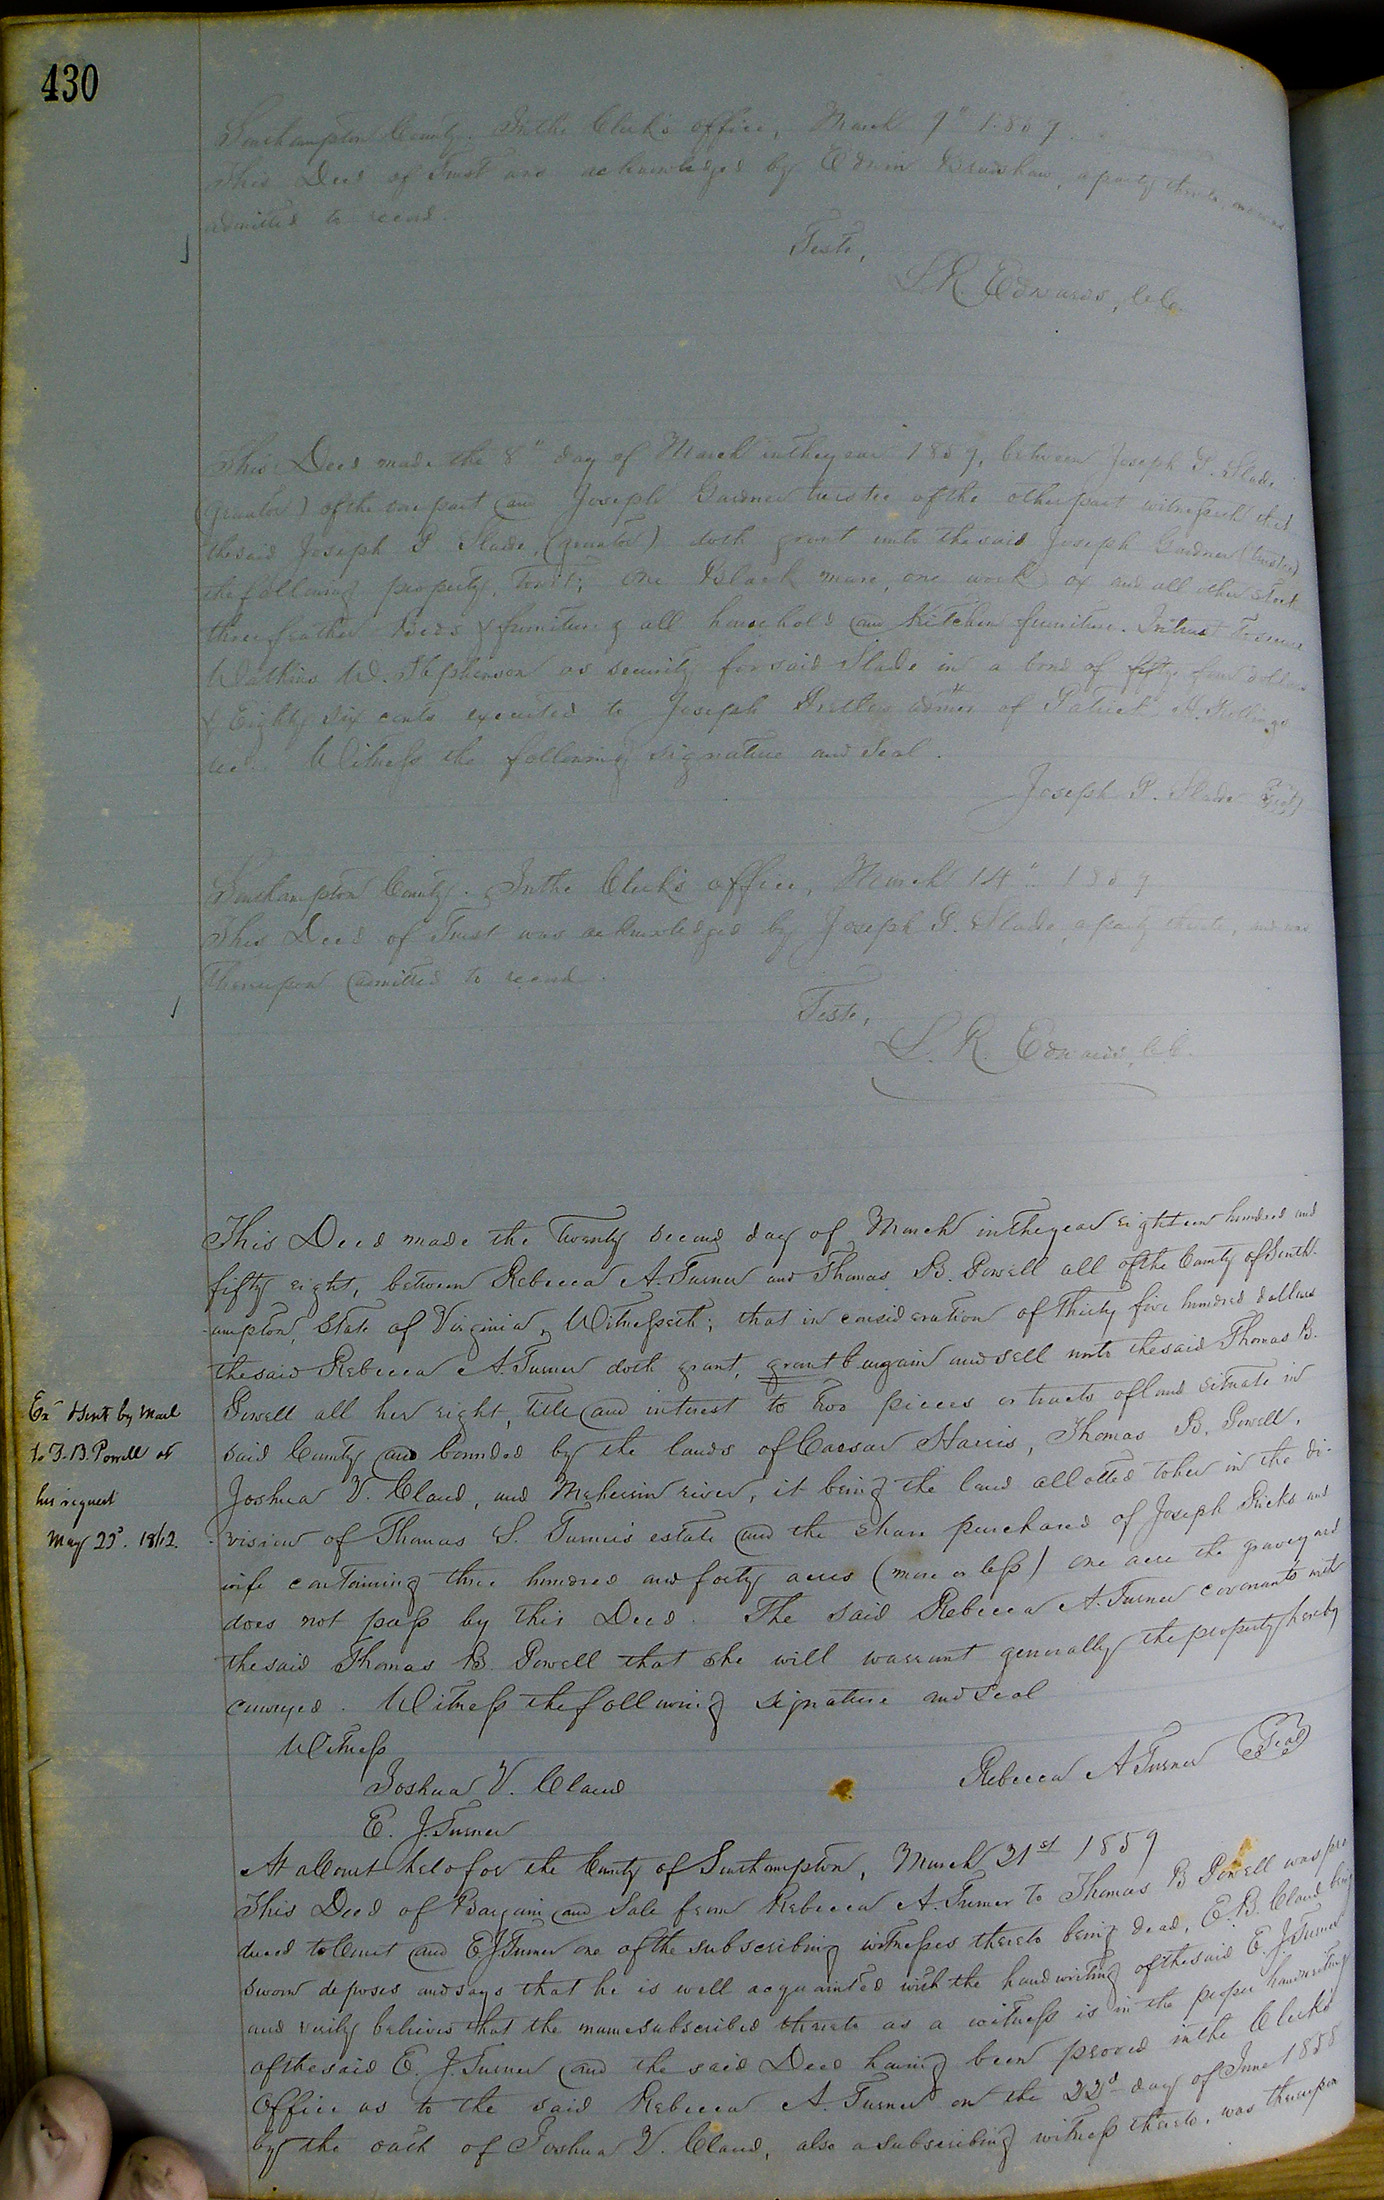 430
Southampton County. In the Clerk's office, March 7" 1859.
This Deed of Trust was acknowledged by Edwin Bradshaw, a party thereto, and was
admitted to record.
Teste,
L. R. Edwards, C. C.
This Deed made the 8" day of March in the year 1859, between Joseph P. Slade
(grantor) of the one part and Joseph Gardner trustee of the other part witnesseth that
the said Joseph P Slade, (grantor) doth grant unto the said Joseph Gardner (trustee)
the following property, towit; One Black mare, one work ox and all other stock
three feather Beds & furniture & all household and Kitchen furniture. In trust to secure
Watkins W. Stephenson as security for said Slade in a bond of fifty four dollars
& Eighty six cents executed to Joseph admr of Patrick H.
dec'd. Witness the following signature and Seal.
Joseph P. Slade Seal
Southampton County. In the Clerk's office, March 14" 1859
This Deed of Trust was acknowledged by Joseph P. Slade, a party thereto, and was
thereupon admitted to record.
Teste,
L. R. Edwards, C. C.
This Deed made the Twenty second day of March in the year eighteen hundred and
fifty eight, between Rebecca A. Turner and Thomas B. Powell all of the County of South-
ampton, State of Virginia, Witnesseth; that in consideration of Thirty five hundred dollars
the said Rebecca A. Turner doth grant, grant bargain and sell unto the said Thomas B.
Powell all her right, title and interest to two pieces or tracts of land situate in
said County and bounded by the lands of Caesar Harris, Thomas B. Powell,
Joshua V. Claud, and Meherrin river, it being the land allotted to her in the di-
-vision of Thomas S. Turner's estate and the share purchased of Joseph Ricks and
wife containing three hundred and forty acres (more or less) one acre the graveyard
does not pass by this Deed. The said Rebecca A. Turner covenants with
the said Thomas B. Powell that she will warrant generally the property hereby
conveyed. Witness the following signature and seal
Witness
Joshua V. Claud
Rebecca A Turner Seal
E. J. Turner
Ex'd & sent by mail
to T. B. Powell at
his request
May 23d. 1862.
At a Court held for the County of Southampton, March 21st 1859
This Deed of Bargain and Sale from Rebecca A. Turner to Thomas B Powell was pro
duced to Court and E J Turner one of the subscribing witnesses thereto being dead, E. B. Claud being
sworn deposes and says that he is well acquainted with the handwriting of the said E. J. Turner
and verily believes that the name subscribed thereto as a witness is in the proper handwriting
of the said E. J. Turner and the said Deed having been proved in the Clerk's
Office as to the said Rebecca A. Turner on the 22d day of June 1858
by the oath of Joshua V. Claud, also a subscribing witness thereto, was thereupon